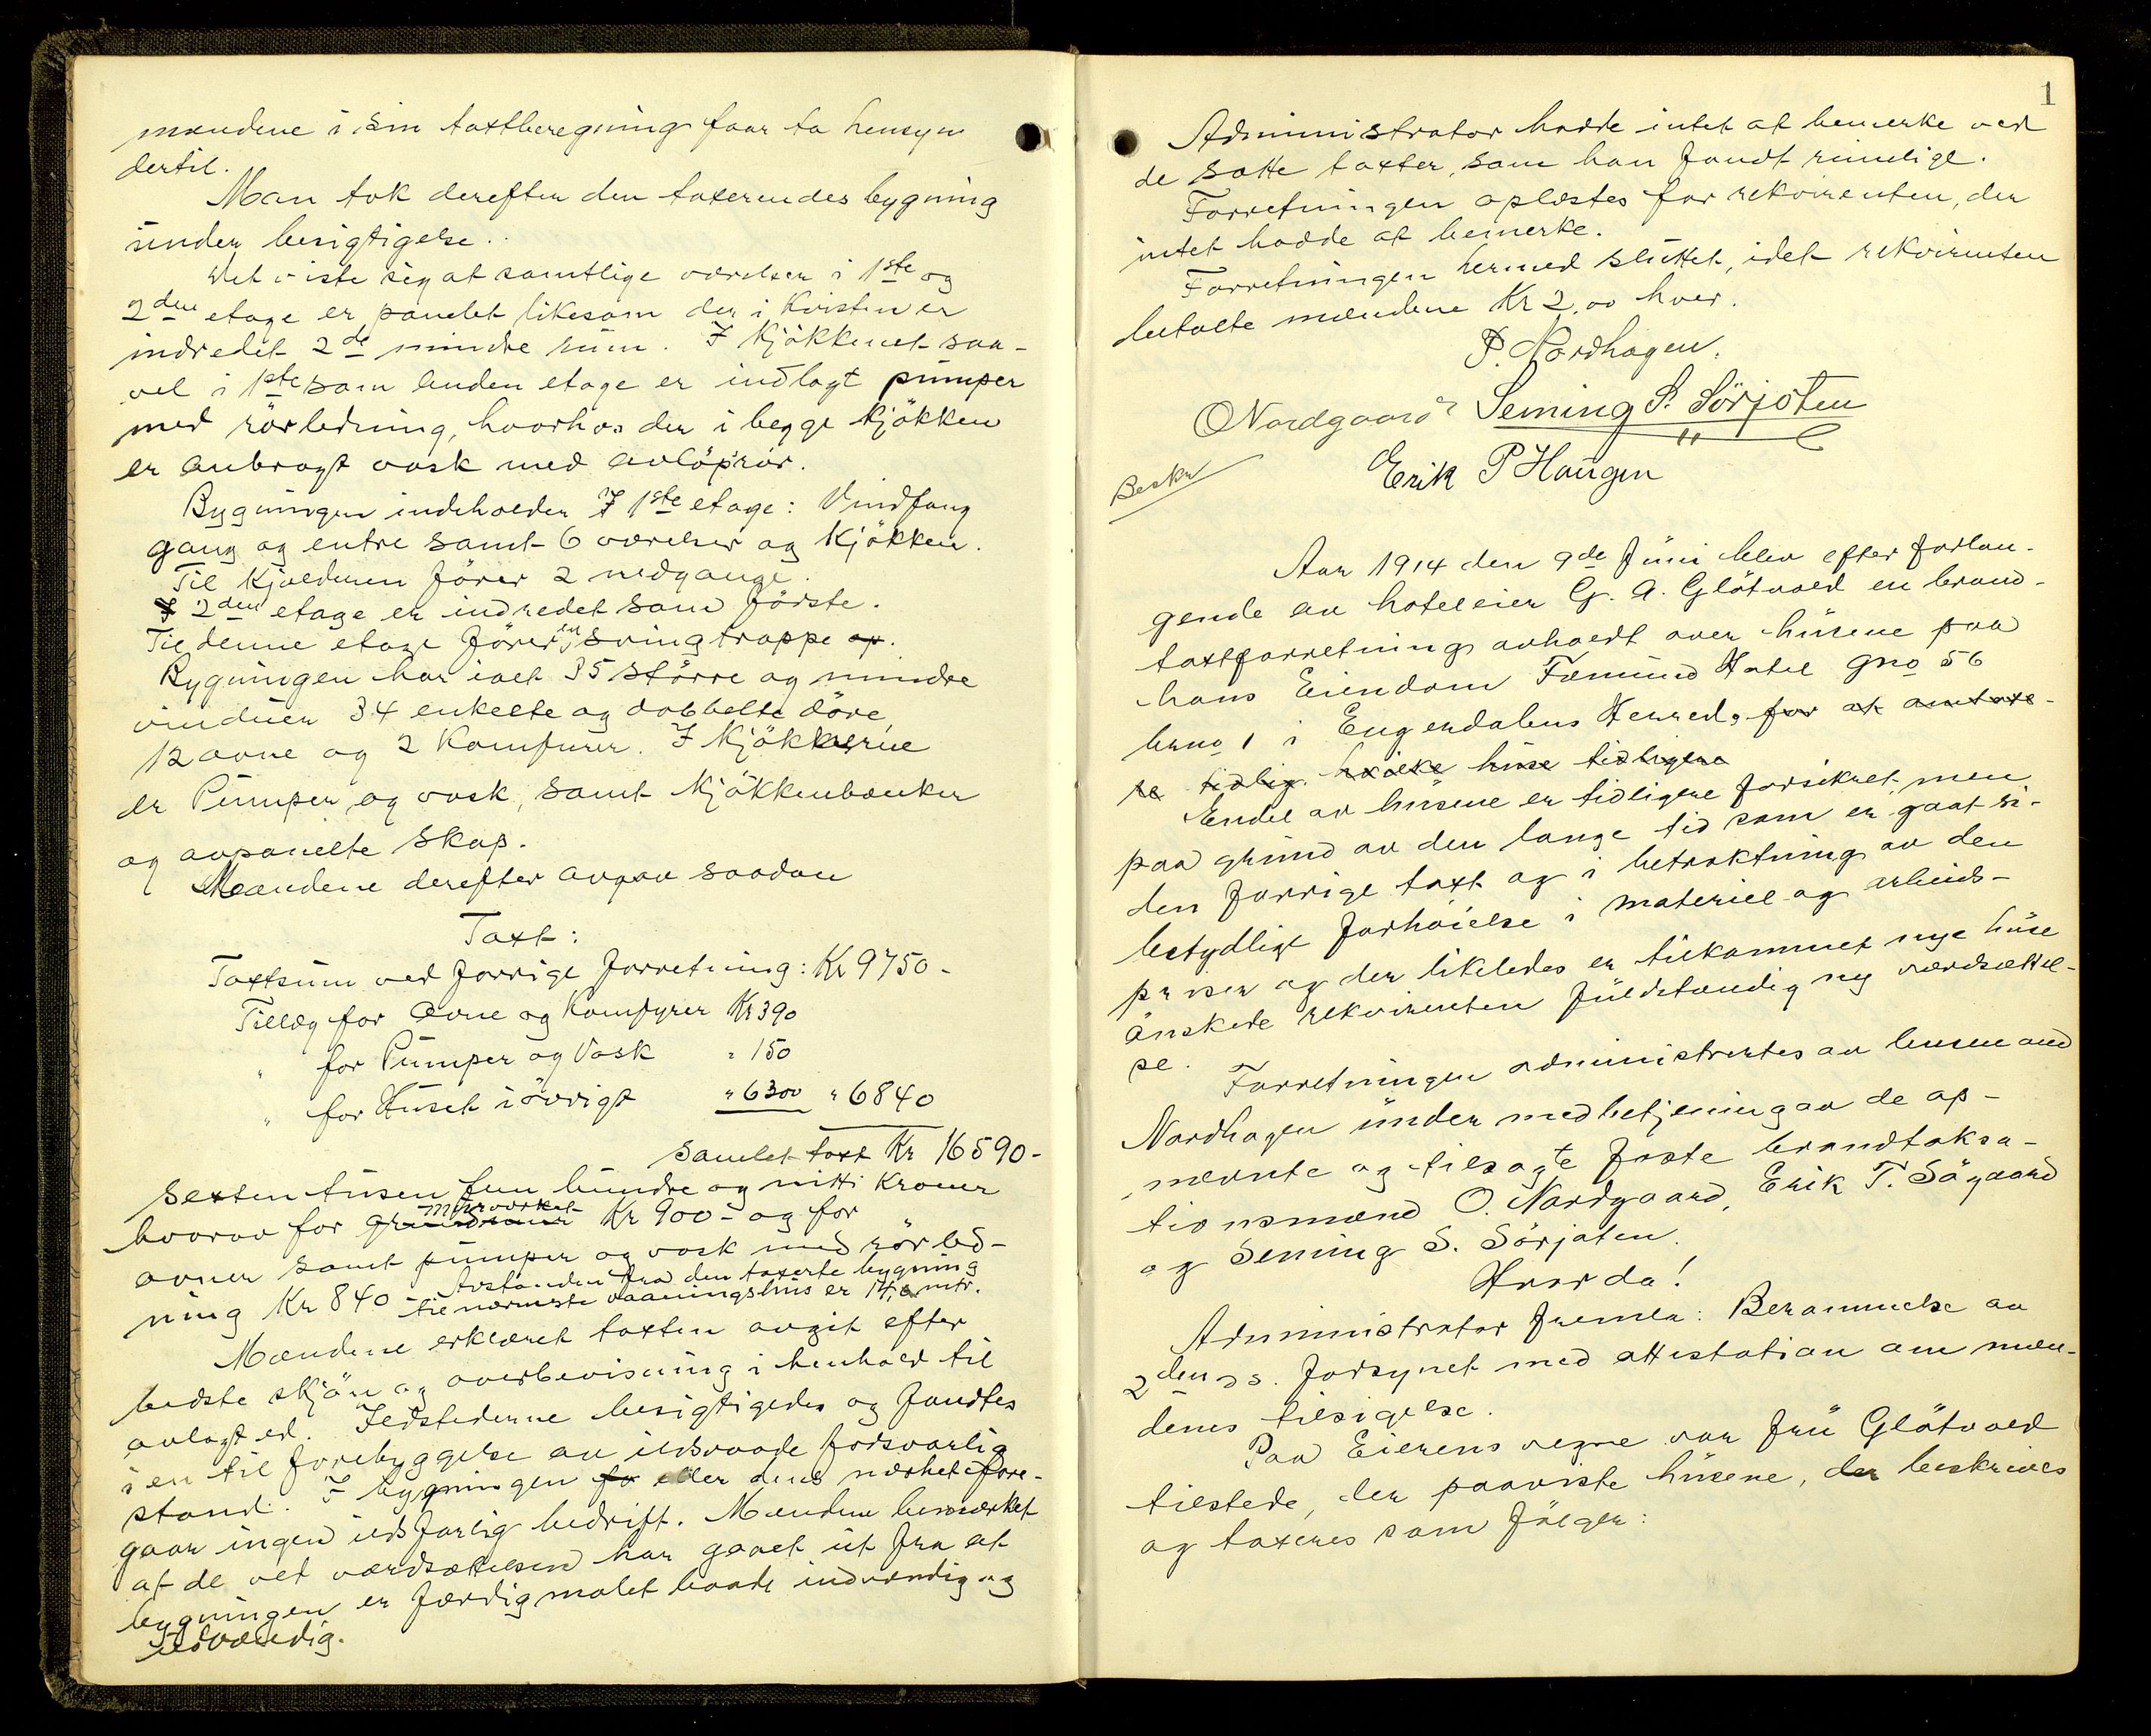 mændene i sin taxtberegning faar ta hensyn
dertil.
Man tok derefter den taxerendes bygning
under besigtigelse.
Det viste sig at samtlige værelser i 1ste og
2den etage er panelet likesom der i Kvisten er
indredet 2de mindre rum. I Kjøkkenet saa-
vel i 1ste som anden etage er indlagt pumper
med rørledning, hvorhos der i begge kjøkken
er anbragt vask med avløpsrør.
Bygningen indeholder I 1ste etage: Vindfang
gang og entre samt 6 værelser og kjøkken.
Til kjælderen fører 2 nedgange.
I 2den etage er indredet som første.
Til denne etage fører en svingtrappe op.
Bygningen har ialt 35 større og mindre
vinduer 34 enkelte og dobbelte døre,
12 ovne og 2 Komfurer. I Kjøkkenene
er Pumper og vask, samt kjøkkenbænker
og avpanelte skap.
Mændene derefter avgav saadan
Taxt:
Taxtsum ved forrige forretning: Kr 9750-
Tillæg for Ovne og Komfyrer Kr 390
" for Pumper og Vask " 150
" for Huset iøvrigt " 6300 " 6840
Samlet taxt Kr 16590-
Sexten tusen fem hundre og nitti Kroner
hvorav for grundmur murverket Kr 900- og for
ovner samt pumper og vask med rørled-
ning Kr 840 Avstanden fra den taxerte bygning
til nærmeste vaaningshus er 14,0 mtr.
Mændene erklæret taxten avgit efter
bedste skjøn og overbevisning i henhold til
avlagt ed. Ildstederne besigtigedes og fandtes
i en til forebyggelse av ildsvaade forsvarlig
stand. I bygningen fo eller dens nærhet fore-
gaar ingen ildsfarlig bedrift. Mændene bemærket
at de ved værdsættelsen har gaaet ut fra at
bygningen er færdig malet baade indvendig og
utvændig.
1
Administrator hadde intet at bemerke ved
de satte taxter, som han fandt rimelige.
Forretningen oplæstes for rekvirenten, der
intet hadde at bemerke.
Forretningen hermed sluttet, idet rekvirenten
betalte mændene Kr 2,00 hver.
P. Nordhagen.
O Nordgaard Seming S. Sørjoten
Erik P Haugen
Beskr
Aar 1914 den 9de Juni blev efter forlan-
gende av hoteleier G. A. Glötvold en brand-
taxtforretning avholdt over husene paa
hans Eiendom Fæmund Hotel gno 56
brno 1 i Engerdalens Herred, for at omtaxe-
re tidlig. hvilke huse tidligere
Endel av husene er tidligere forsikret, men
paa grund av den lange tid som er gaat si-
den forrige taxt og i betraktning av den
betydlige forhøielse i materiel og arbeids-
priser og der likeledes er tilkommet nye huse
ønskede rekvirenten fuldstændig ny værdsættel-
se.
Forretningen administrertes av lensmand
Nordhagen under medbetjening av de op-
nævnte og tilsagte faste brandtaksa-
tionsmænd O. Nordgaard, Erik T. Sögaard
og Seming S. Sørjoten.
Hvorda!
Administrator fremla: Berammelse av
2den ds. forsynet med attestation om mæn-
denes tilsigelse.
Paa Eierens vegne var fru Glötvold
tilstede, der paaviste husene, der beskrives
og taxeres som følger: